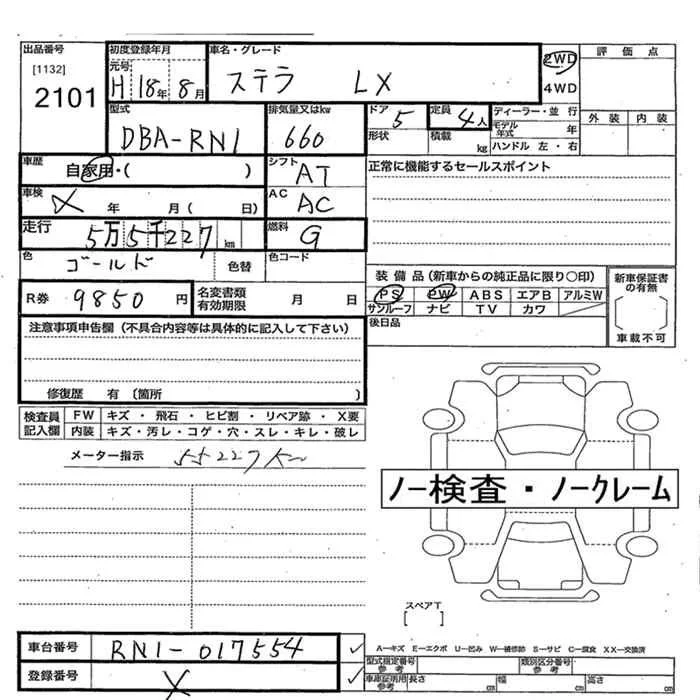 出品番号 初度登録年月 車名・グレード 2WD 評価点
[1132] 元号 4WD
2101 H 18年 8月 ステラ LX
型式 排気量又はkw ドア 5 定員 4人 ディーラー・並行 外装 内装
DBA-RN1 660 形状 積載 kg モデル年式 年
ハンドル 左・右
車歴 自家用・( ) シフト AT 正常に機能するセールスポイント
車検 X 年 月( 日) AC AC
走行 5万5千227km 燃料 G
色 ゴールド 色替 色コード 装備品(新車からの純正品に限り○印) 新車保証書の有無
R券 9850円 名変書類有効期限 月 日 PS PW ABS エアB アルミW
サンルーフ ナビ TV カワ
後日品 車載不可
注意事項申告欄(不具合内容等は具体的に記入して下さい)
修復歴 有〔箇所 〕
検査員記入欄 FW キズ・飛石・ヒビ割・リペア跡・X要
内装 キズ・汚レ・コゲ・穴・スレ・キレ・破レ
メーター指示 55227km
ノー検査・ノークレーム
スペアT
[ ]
車台番号 RN1-017554 ✓ A－キズ E－エクボ U－凹み W－補修跡 S－サビ C－腐食 XX－交換済
型式指定番号 参考 類別区分番号 参考
登録番号 X ✓ 車庫証明用 参考 長さ cm 幅 cm 高さ cm